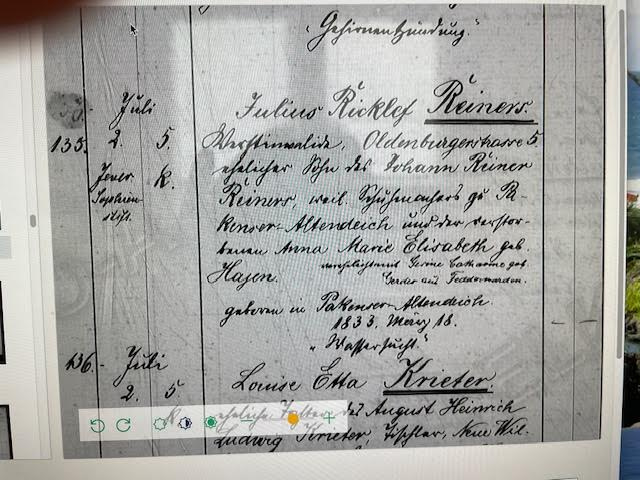 "Gehirnentzündung."
Juli
Julius Ricklef Reiners.
135. 2. 5. Werftinvalide, Oldenburgerstrasse 5.
Jever K. ehelicher Sohn des Johann Reiner
Sophien- Reiners, weil. Schuhmachers zu Pa-
stift. kenser-Altendeich und der verstor-
benen Anna Marie Elisabeth geb.
Hajen. verehelicht mit Gerine Catharine geb.
Gerdes aus Feddewarden.
geboren in Pakenser-Altendeich.
1833. März 18.
"Wassersucht."
136. Juli
2. 5 Louise Etta Krieter.
K. eheliche Tochter des August Heinrich
Ludwig Krieter, Tischler, Neue Wil-